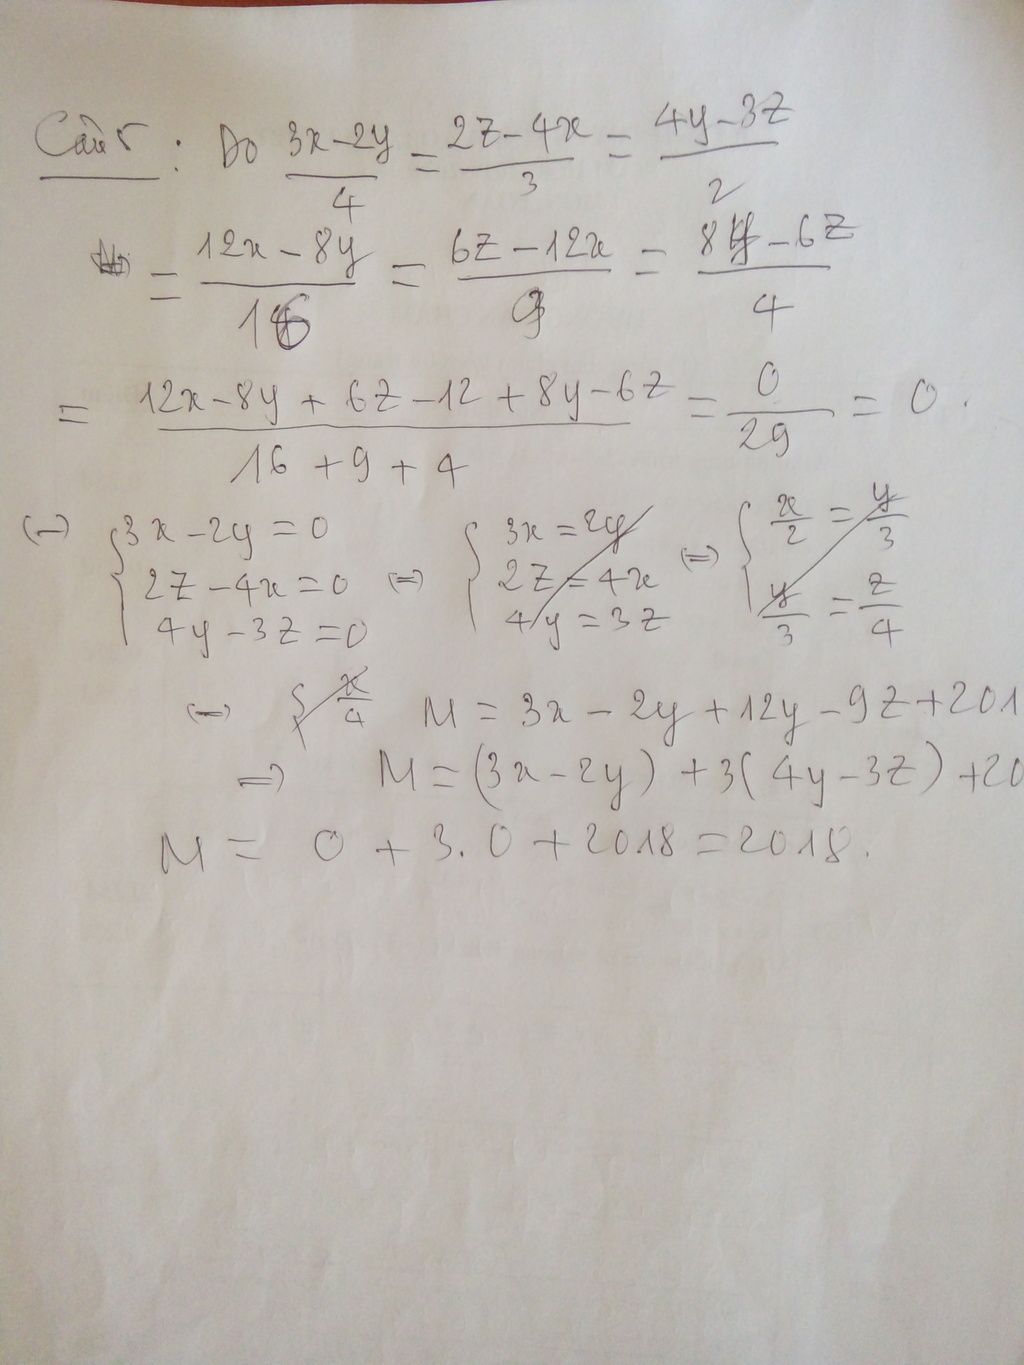 Câu 5 : Do (3x-2y)/4 = (2z-4x)/3 = (4y-3z)/2
= (12x-8y)/16 = (6z-12x)/9 = (8y-6z)/4
= (12x-8y+6z-12+8y-6z)/(16+9+4) = 0/29 = 0.
(=) { 3x-2y=0 (=) { 3x=2y (=) { x/2 = y/3
2z-4x=0 2z=4x
4y-3z=0 4y=3z y/3 = z/4
(=) { x/4 M = 3x-2y+12y-9z+201
=> M = (3x-2y) + 3(4y-3z) +20
M = 0 + 3.0 + 2018 = 2018.